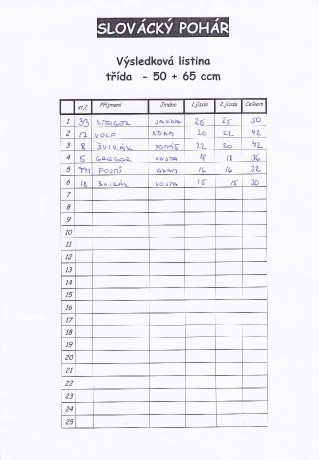 SLOVÁCKÝ POHÁR
Výsledková listina
třída - 50 + 65 ccm
st.č. Příjmení Jméno 1 jízda 2 jízda Celkem
1 33 STEIGER 25 25 50
2 17 VOLF ADAM 20 22 42
3 8 ŠVIRÁK TOMÁŠ 22 20 42
4 5 GREGOR VOJTA 18 18 36
5 771 FOJTŮ ADAM 16 16 32
6 18 ŠVIRÁK VOJTA 15 15 30
7
8
9
10
11
12
13
14
15
16
17
18
19
20
21
22
23
24
25